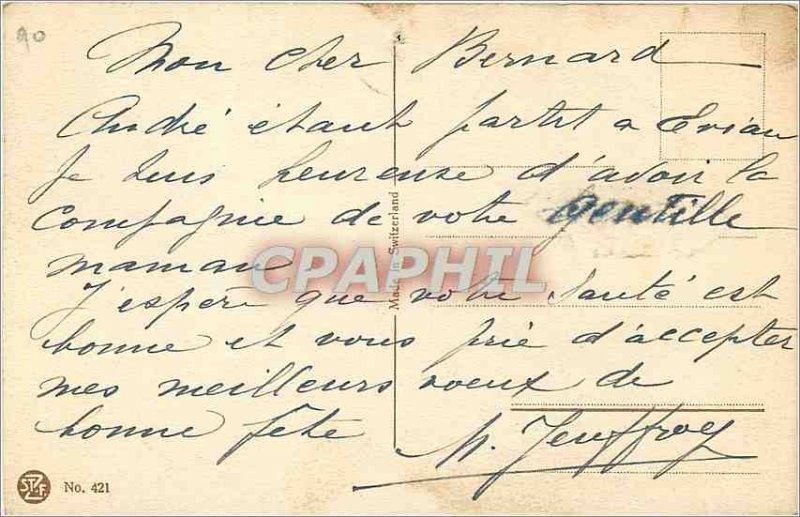 90
Mon cher Bernard
André étant partit a Evian
Je suis heureuse d'avoir la
compagnie de votre gentille
maman
J'espère que votre santé est
bonne et vous prie d'accepter
mes meilleurs voeux de
bonne fête
M. Jeuffroy
Made in Switzerland
CPAPHIL
No. 421